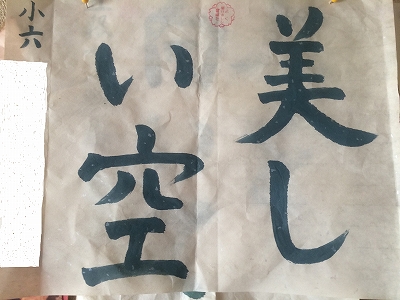 美し
い空
小六